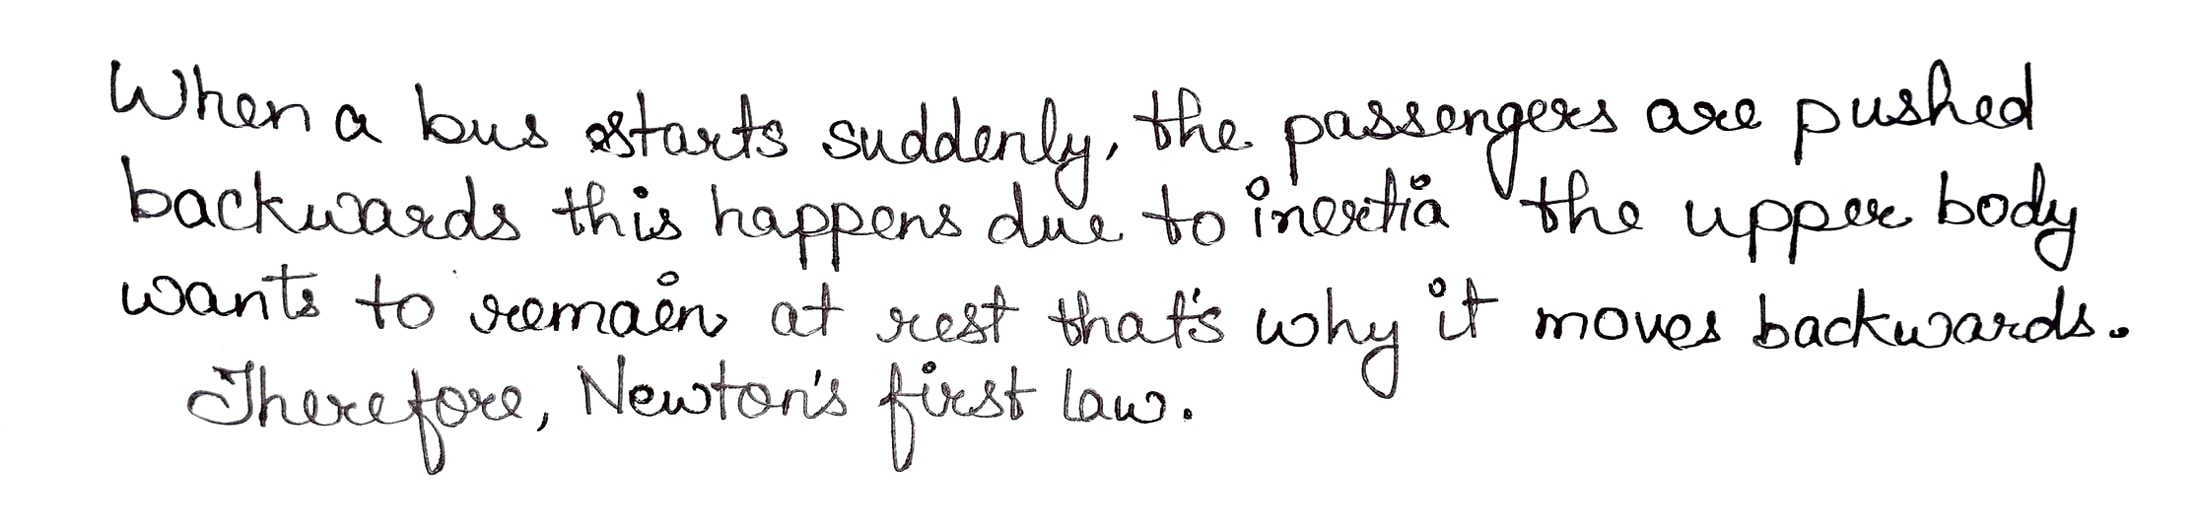 When a bus starts suddenly, the passengers are pushed
backwards this happens due to inertia the upper body
wants to remain at rest that's why it moves backwards.
Therefore, Newton's first law.